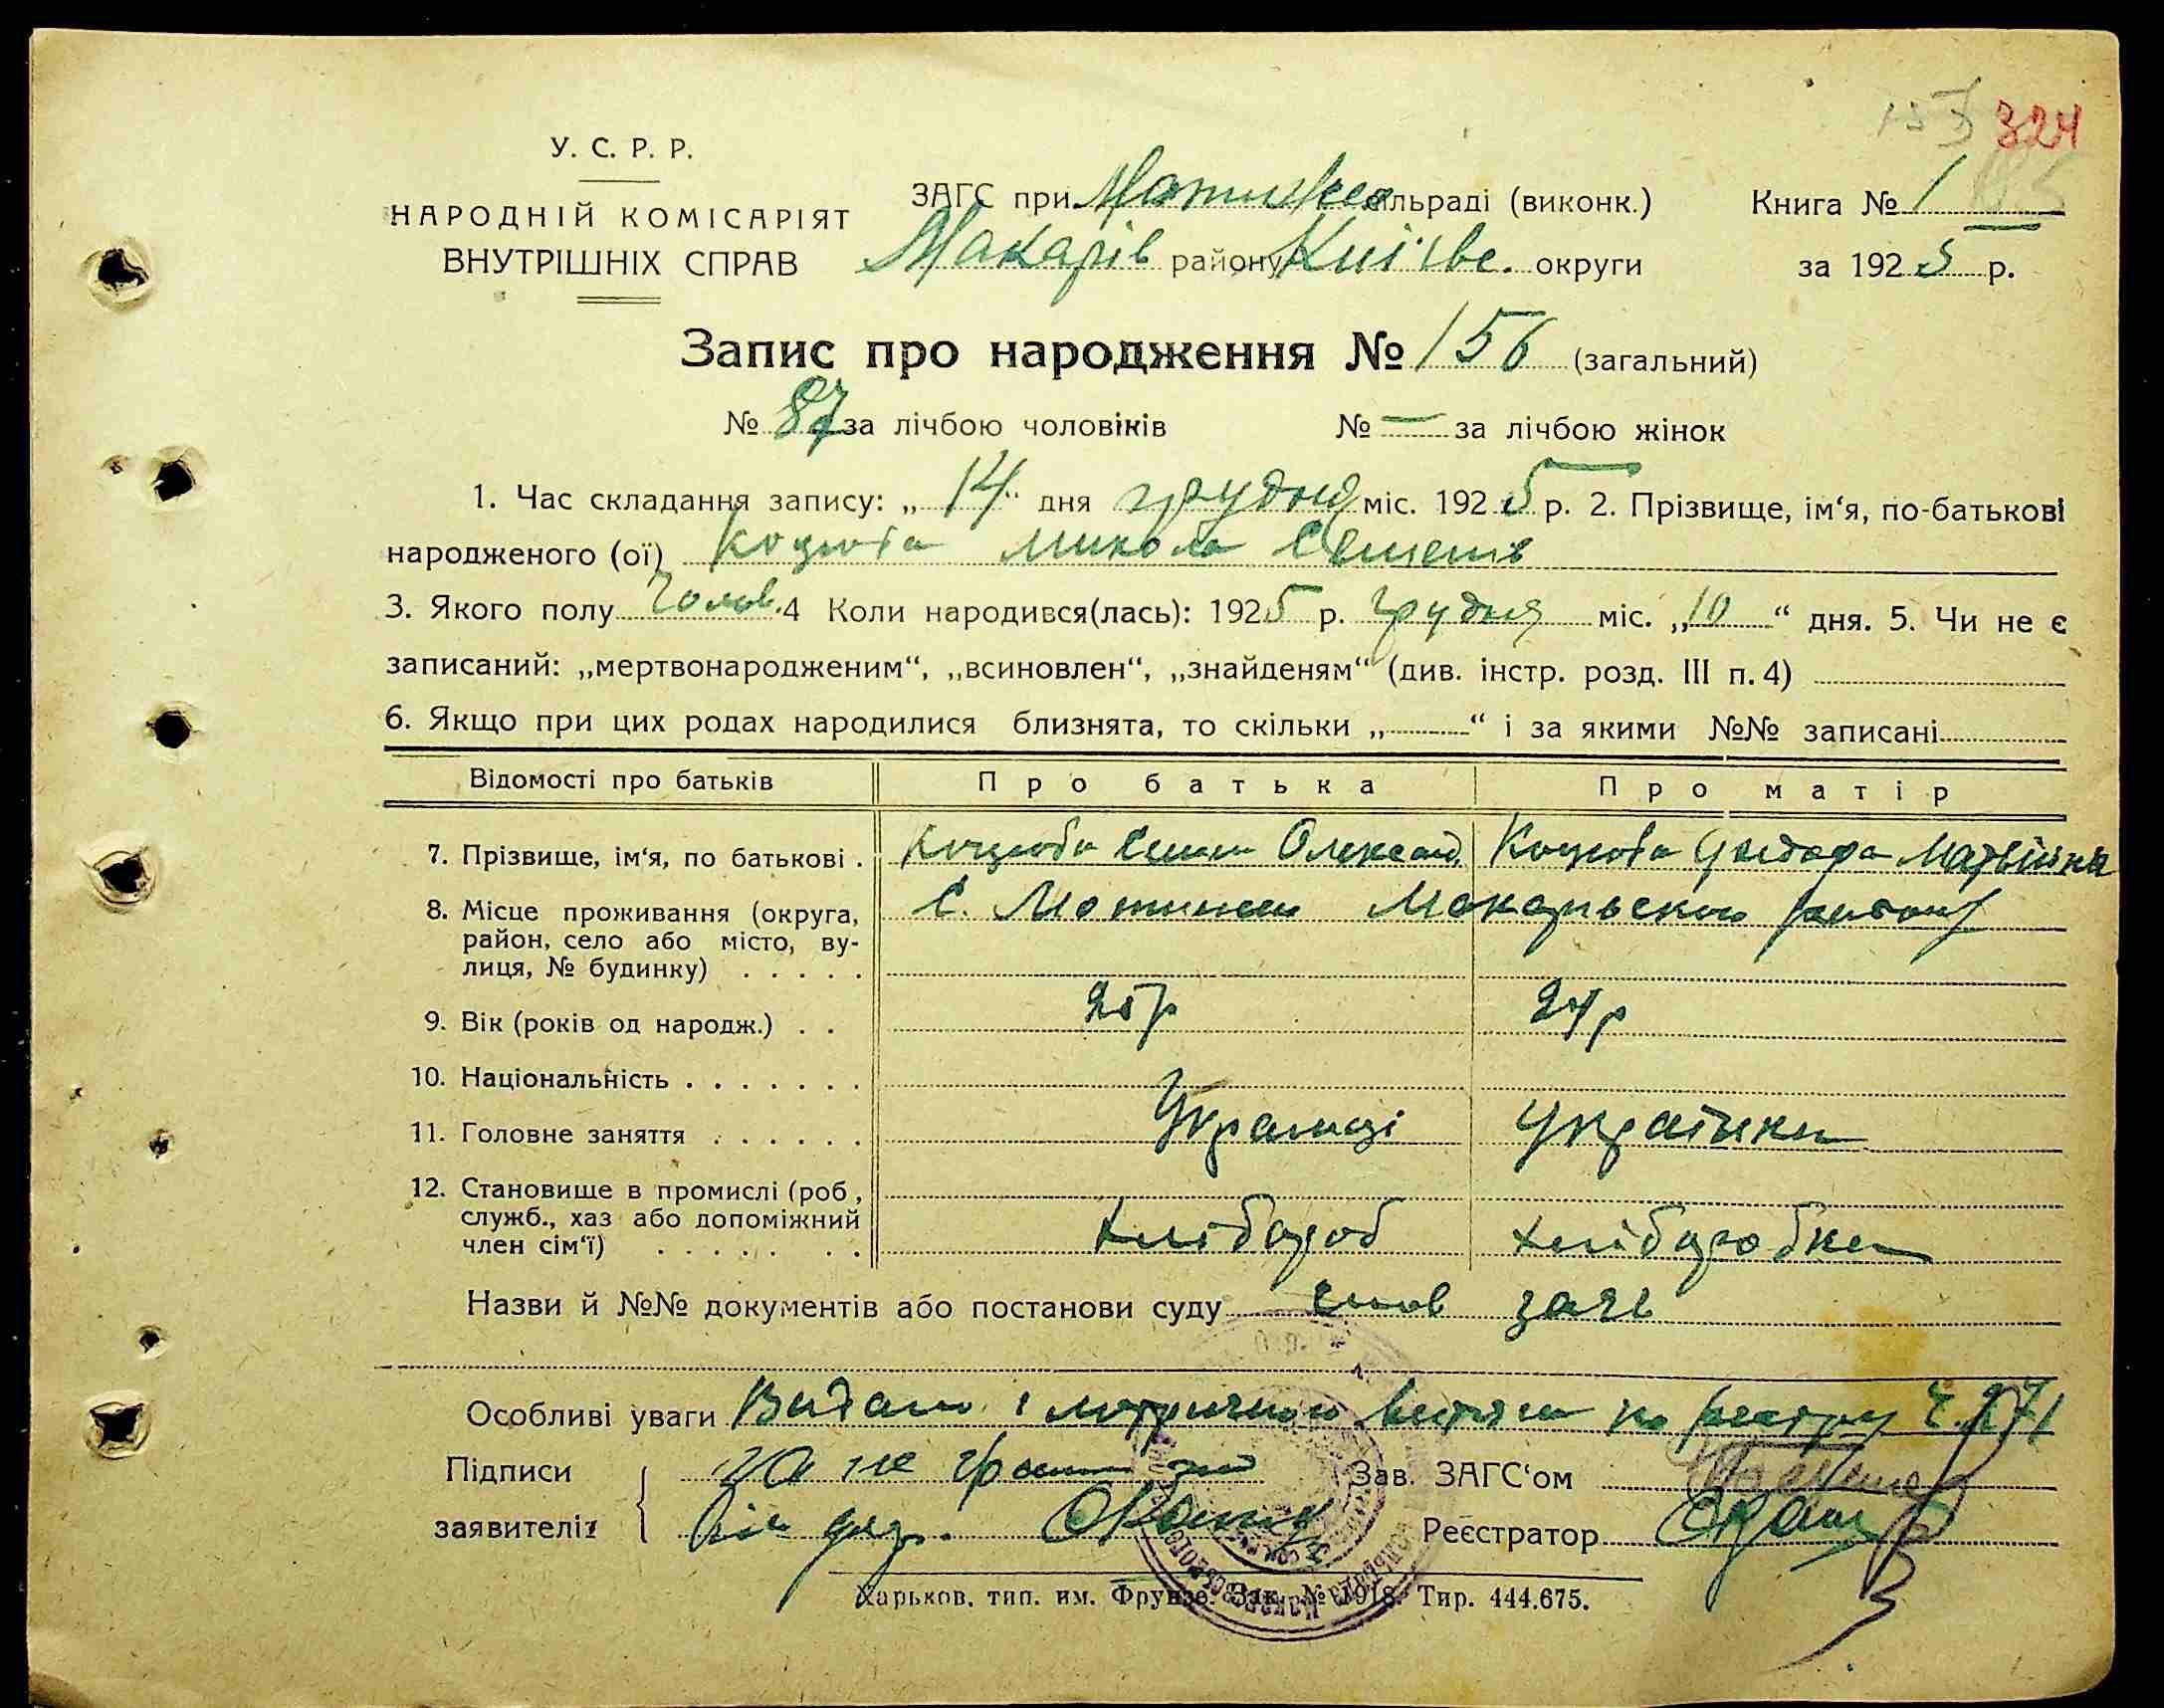 324
У. С. Р. Р.
НАРОДНІЙ КОМІСАРІЯТ
ВНУТРІШНІХ СПРАВ
ЗАГС при Мотиже сільраді (виконк.)
Макарів району Київс. округи
Книга № 1
за 1925 р.
Запис про народження № 156 (загальний)
№ 87 за лічбою чоловіків № — за лічбою жінок
1. Час складання запису: „14“ дня грудня міс. 1925 р. 2. Прізвище, ім‘я, по-батькові
народженого (ої) Коцюба Микола
3. Якого полу Чолов. 4 Коли народився(лась): 1925 р. грудня міс. „10“ дня. 5. Чи не є
записаний: „мертвонародженим“, „всиновлен“, „знайденям“ (див. інстр. розд. III п. 4)
6. Якщо при цих родах народилися близнята, то скільки „ “ і за якими №№ записані
Відомості про батьків Про батька Про матір
7. Прізвище, ім‘я, по батькові . Коцюба Олександ Коцюба Матвіївна
8. Місце проживання (округа, С. Мотижен Макарівського району
район, село або місто, ву-
лиця, № будинку) . . . . .
9. Вік (років од народж.) . . 25 р 24 р
10. Національність . . . . . . .
11. Головне заняття . . . . . . Українці Українка
12. Становище в промислі (роб.,
служб., хаз або допоміжний
член сім‘ї) . . . . . . . Хлібороб хліборобка
Назви й №№ документів або постанови суду заяв
Особливі уваги Видано витяг по реєстру Ч. 271
Підписи
заявителів
Зав. ЗАГС‘ом
Реєстратор
Харьков. тип. им. Фрунзе. Зак. № 1918. Тир. 444.675.